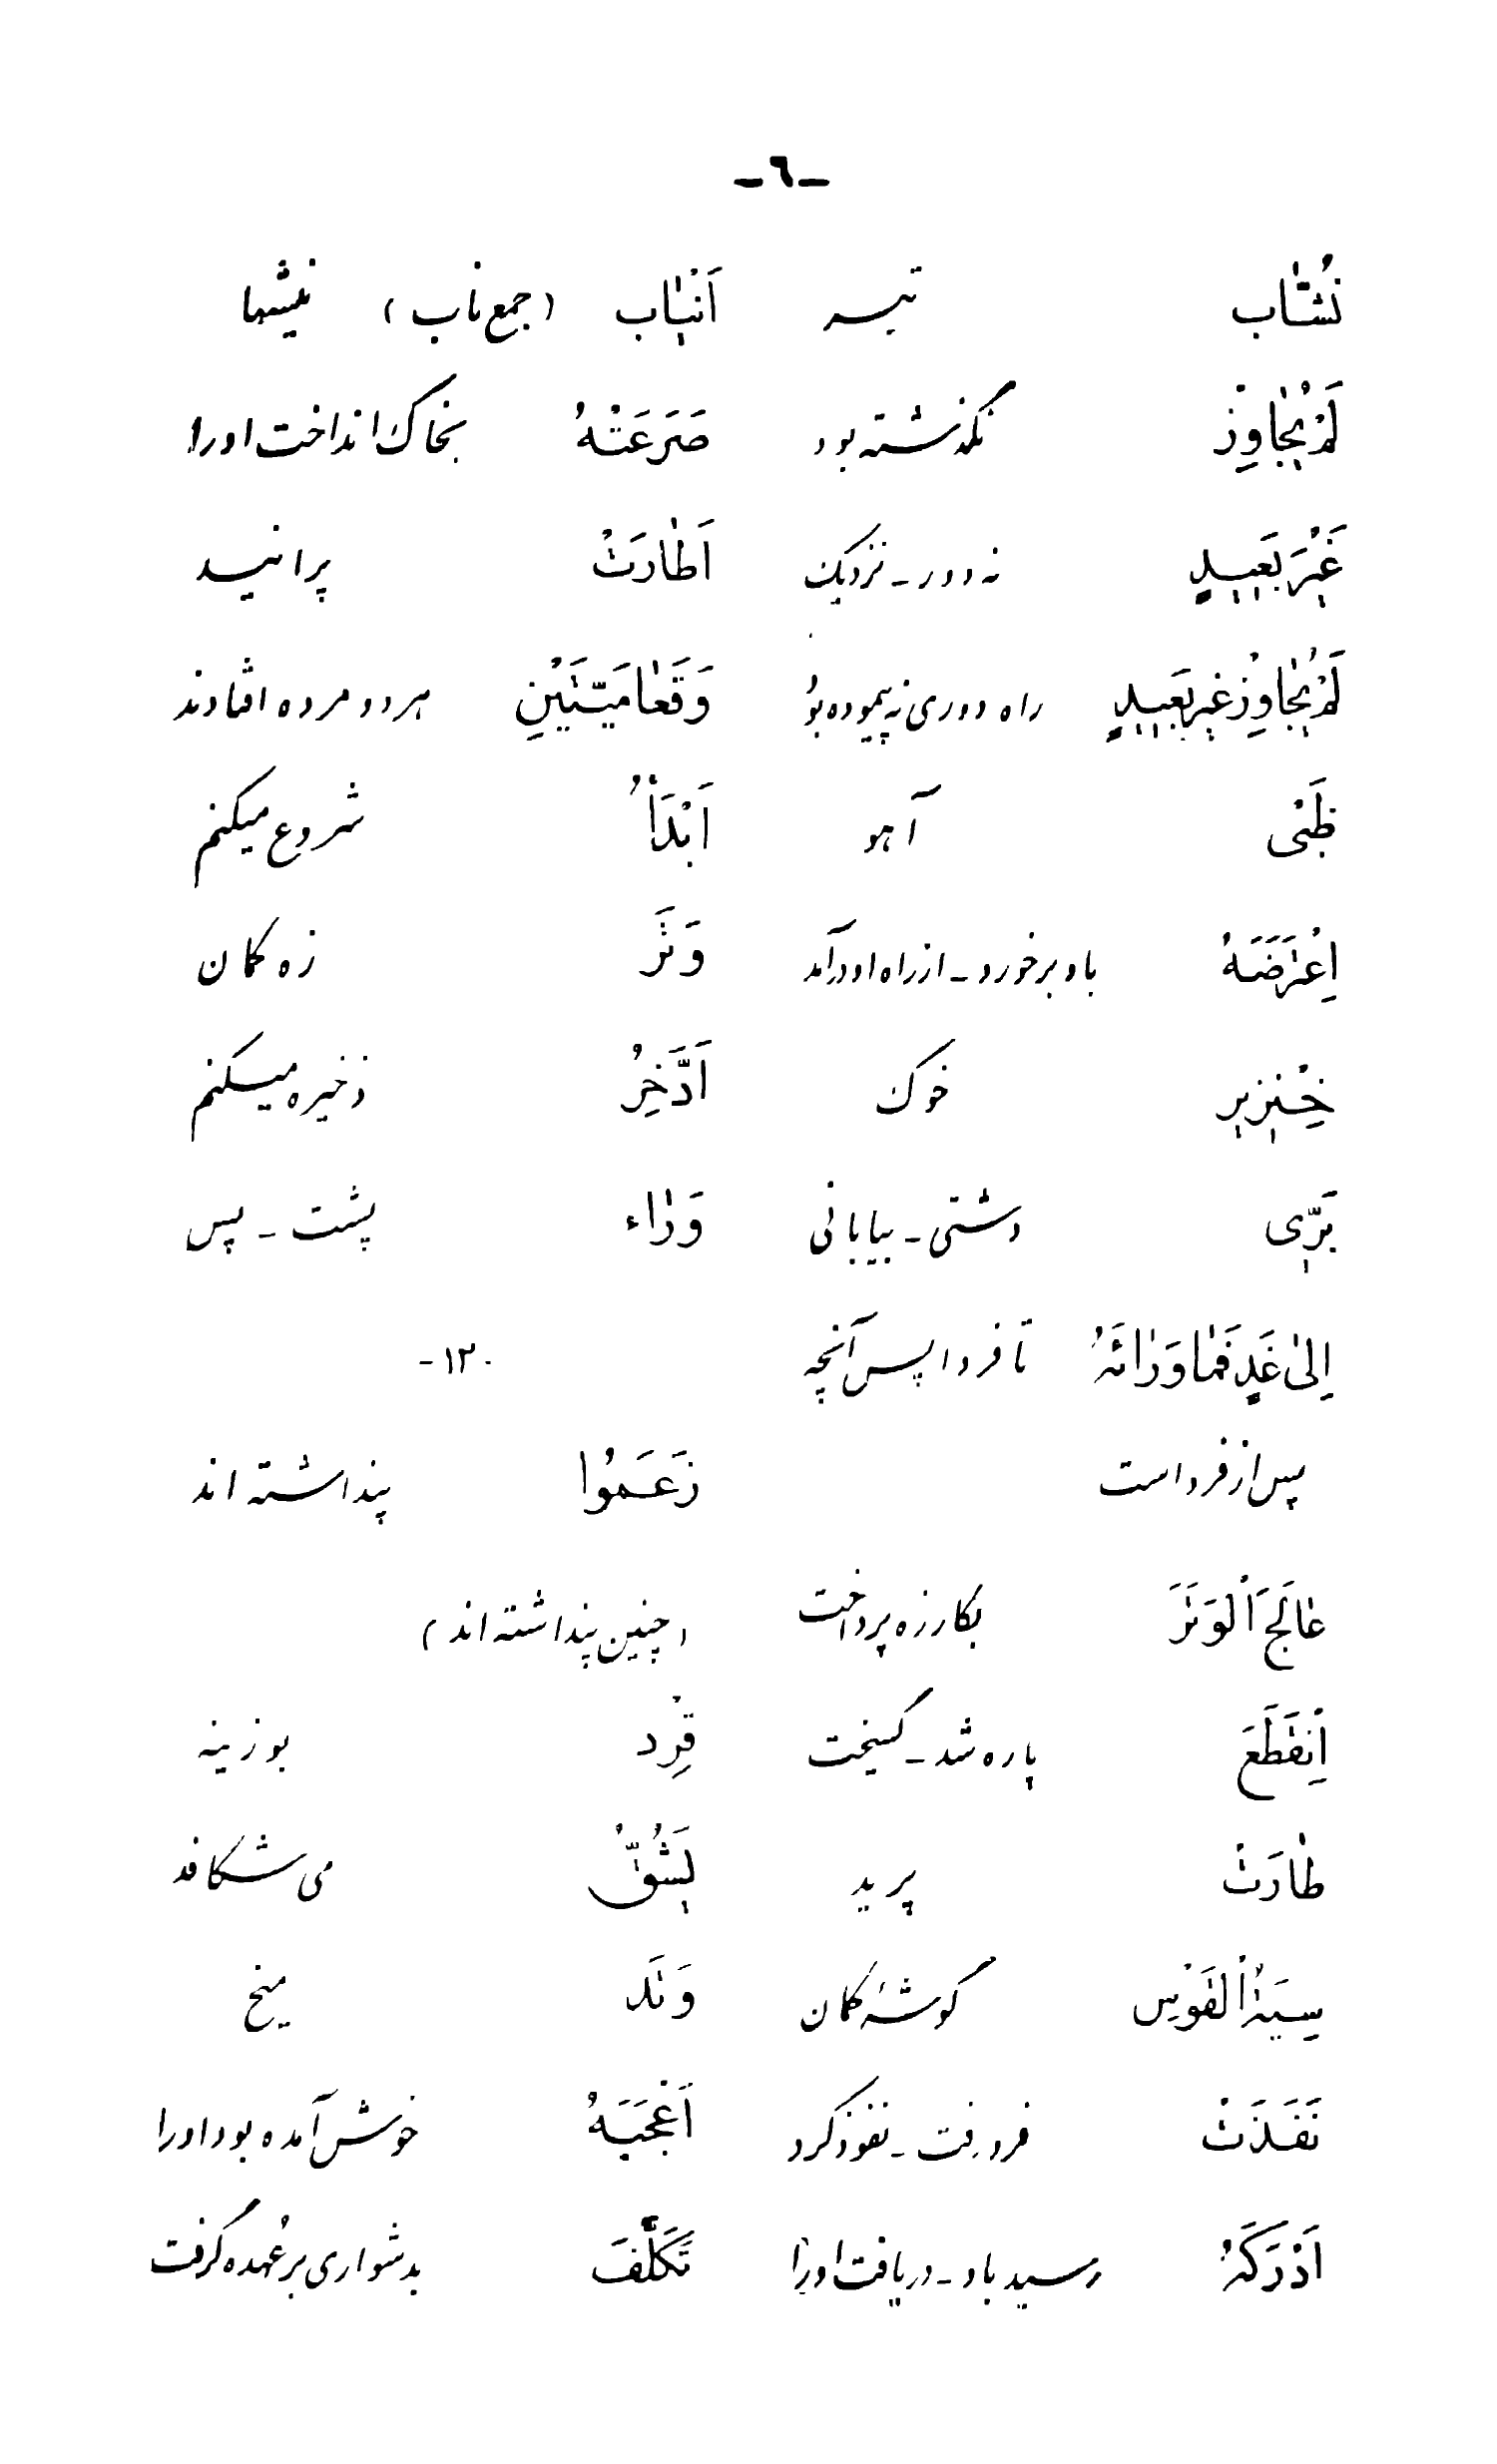 -٦-
نُشّاب تیر اَنْیاب (جمع ناب) نیشها
لَمْ یُجاوِزْ نگذشته بود صَرَعَتْهُ بخاک انداخت اورا
غَیْرَ بَعیدٍ نه دور - نزدیک اَطارَتْ پرانید
لَمْ یُجاوِزْ غیر بَعیدٍ راه دوری نه پیموده بود وَقَعا مَیِّتَیْنِ هر دو مرده افتادند
ظَبْی آهو اَبْدَأُ شروع میکنم
اِعْتَرَضَهُ باو برخورد - از راه او درآمد وَتَر زه کمان
خِنْزیر خوک اَدَّخِرُ ذخیره میکنم
بَرّی دشتی - بیابانی وَراء پشت - پس
اِلیٰ غَدٍ فَما وَرائَهُ تا فردا پس آنچه -۱۳۰
پس از فرداست زَعَمُوا پنداشته اند
عالَجَ اَلْوَتَرَ بکار زه پرداخت (چنین پنداشته اند)
اِنْقَطَعَ پاره شد - گسیخت قِرْد بوزینه
طارَتْ پرید یَشُقُّ می شکافد
سِیَةُ الْقَوْسِ گوشهٔ کمان وَتَد میخ
نَفَذَتْ فرو رفت - نفوذ کرد اَعْجَبَهُ خوش آمده بود اورا
اَدْرَکَهُ رسید باو - دریافت اورا تَکَلَّفَ بدشواری بر عُهده گرفت